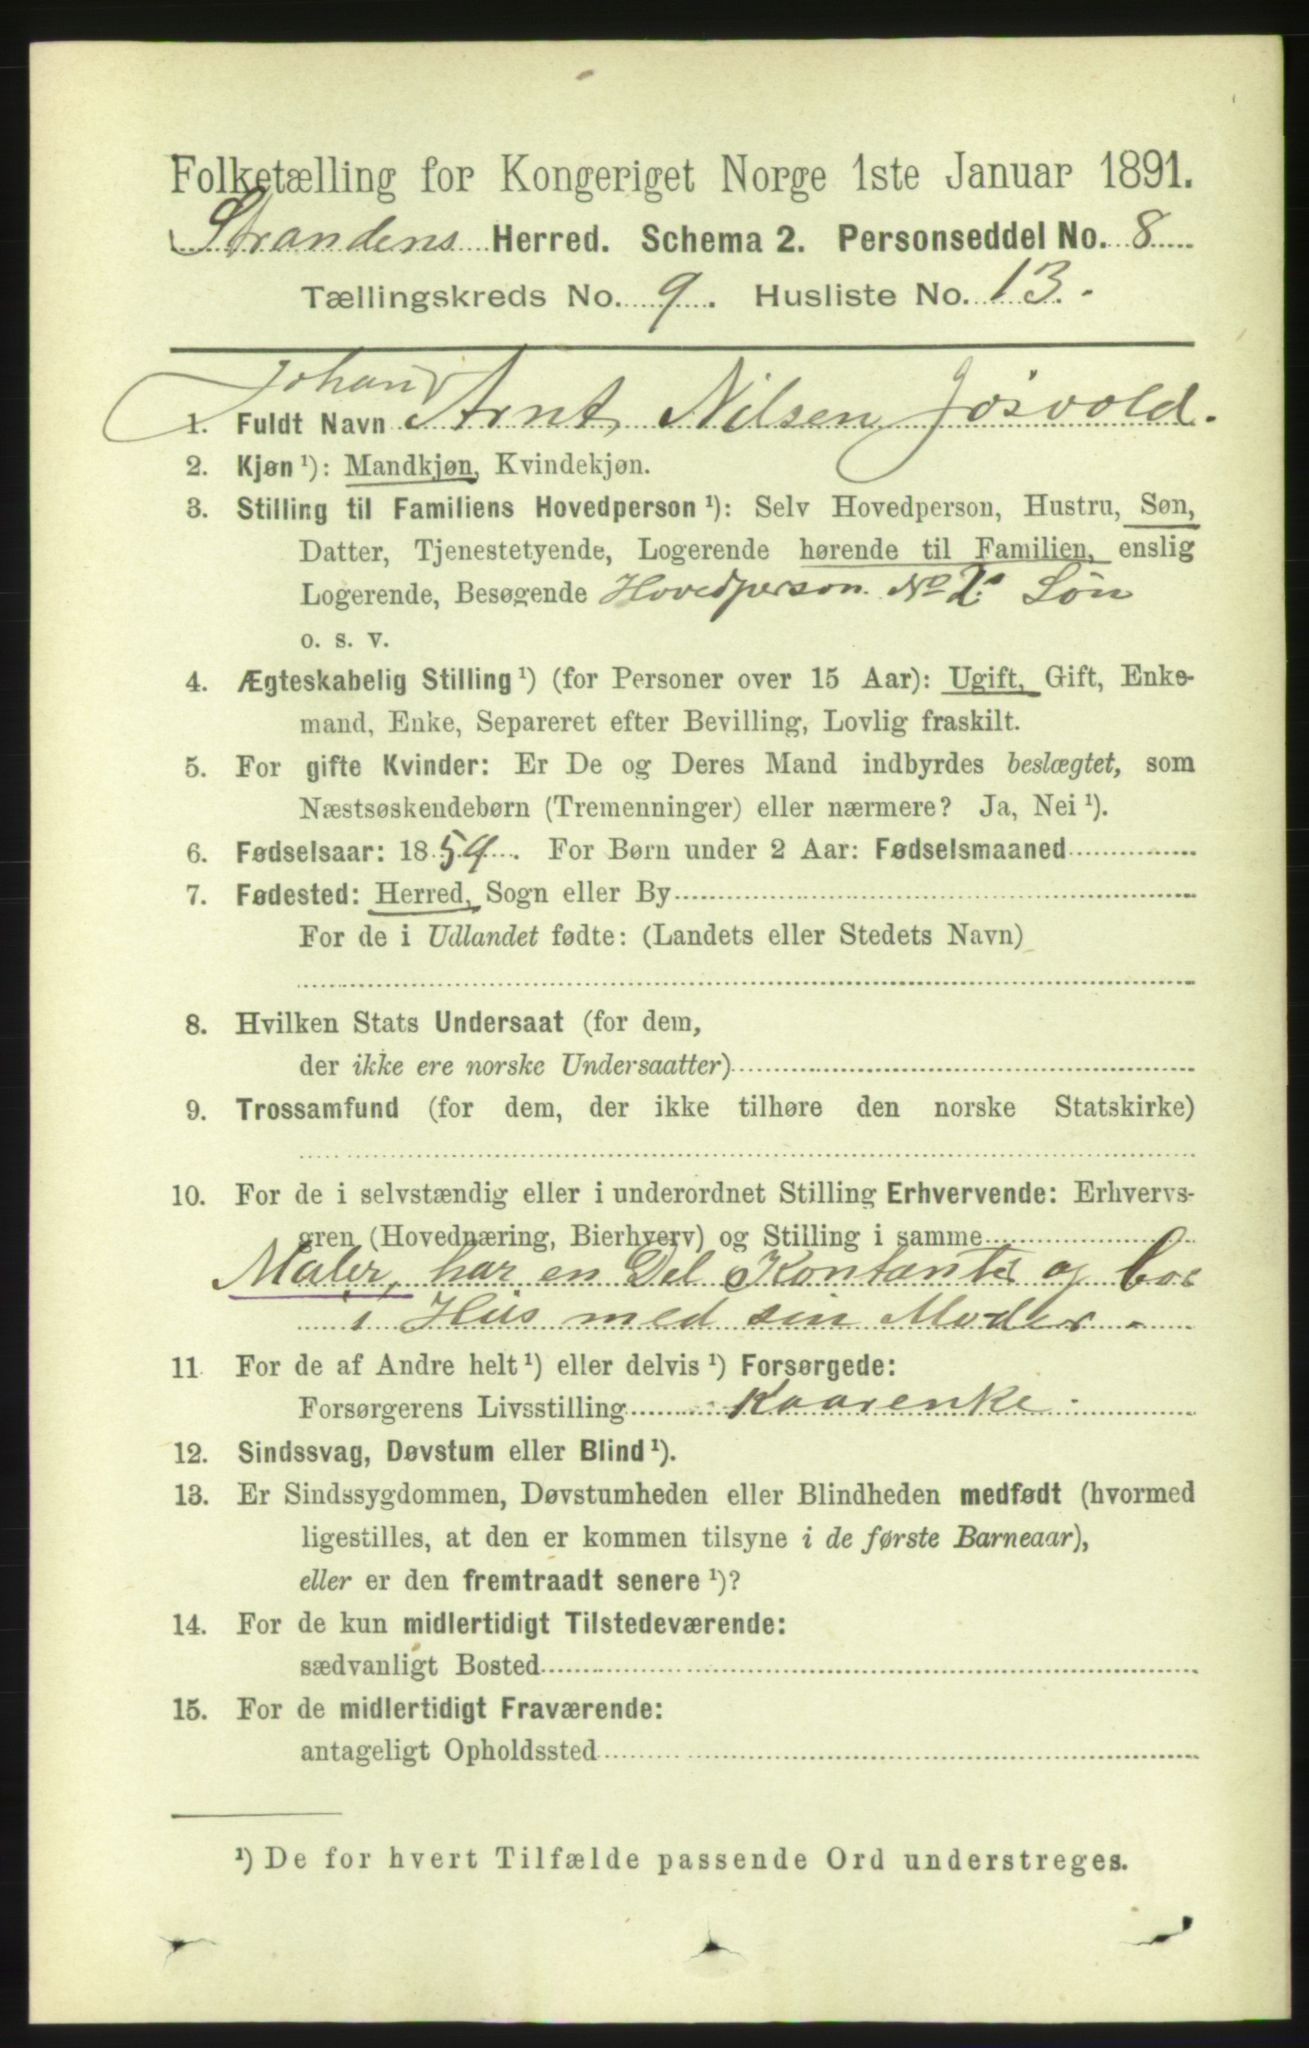 Folketælling for Kongeriget Norge 1ste Januar 1891.
Strandens Herred. Schema 2. Personseddel No. 8
Tællingskreds No. 9. Husliste No. 13.
Johan
1. Fuldt Navn Arnt Nilsen Jøsvold.
2. Kjøn ¹): Mandkjøn, Kvindekjøn.
3. Stilling til Familiens Hovedperson ¹): Selv Hovedperson, Hustru, Søn,
Datter, Tjenestetyende, Logerende hørende til Familien, enslig
Logerende, Besøgende Hovedperson No 2s Søn
o. s. v.
4. Ægteskabelig Stilling ¹) (for Personer over 15 Aar): Ugift, Gift, Enke-
mand, Enke, Separeret efter Bevilling, Lovlig fraskilt.
5. For gifte Kvinder: Er De og Deres Mand indbyrdes beslægtet, som
Næstsøskendebørn (Tremenninger) eller nærmere? Ja, Nei ¹).
6. Fødselsaar: 1859. For Børn under 2 Aar: Fødselsmaaned
7. Fødested: Herred, Sogn eller By
For de i Udlandet fødte: (Landets eller Stedets Navn)
8. Hvilken Stats Undersaat (for dem,
der ikke ere norske Undersaatter)
9. Trossamfund (for dem, der ikke tilhøre den norske Statskirke)
10. For de i selvstændig eller i underordnet Stilling Erhvervende: Erhvervs-
gren (Hovednæring, Bierhverv) og Stilling i samme
Maler, har en Del Kontanter og bor
i Hus med sin Moder.
11 For de af Andre helt ¹) eller delvis ¹) Forsørgede:
Forsørgerens Livsstilling Kaarenke.
12. Sindssvag, Døvstum eller Blind ¹).
13. Er Sindssygdommen, Døvstumheden eller Blindheden medfødt (hvormed
ligestilles, at den er kommen tilsyne i de første Barneaar),
eller er den fremtraadt senere ¹)?
14. For de kun midlertidigt Tilstedeværende:
sædvanligt Bosted
15. For de midlertidigt Fraværende:
antageligt Opholdssted
¹) De for hvert Tilfælde passende Ord understreges.